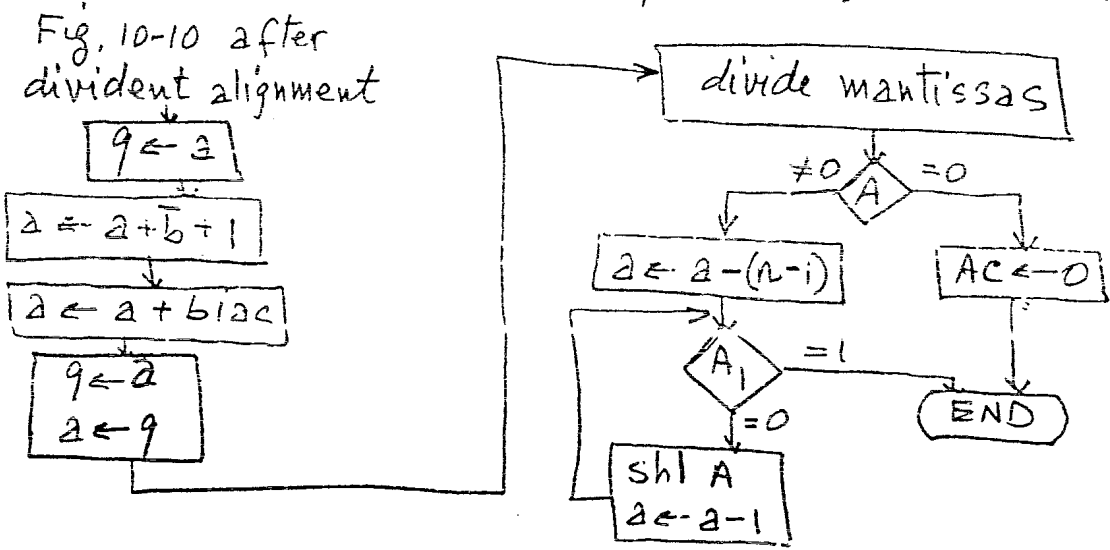 Fig. 10-10 after
divident alignment
q ← a
a ← a + b̅ + 1
a ← a + bias
q ← a
a ← q
divide mantissas
≠0
=0
A
a ← a - (n-i)
AC ← 0
A₁
=1
=0
END
shl A
a ← a - 1